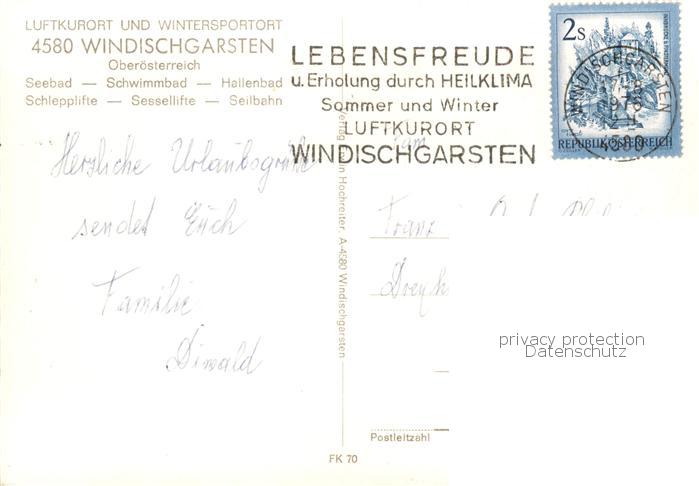 LUFTKURORT UND WINTERSPORTORT
4580 WINDISCHGARSTEN
Oberösterreich
Seebad — Schwimmbad — Hallenbad
Schlepplifte — Sessellifte — Seilbahn
LEBENSFREUDE
u. Erholung durch HEILKLIMA
Sommer und Winter
LUFTKURORT
WINDISCHGARSTEN
2s
REPUBLIK ÖSTERREICH
WINDISCHGARSTEN
4580
Herzliche Urlaubsgrüße
sendet Euch
Familie
Diwald
Hochreiter, A-4580 Windischgarsten
Fam
Franz
privacy protection
Datenschutz
Postleitzahl
FK 70